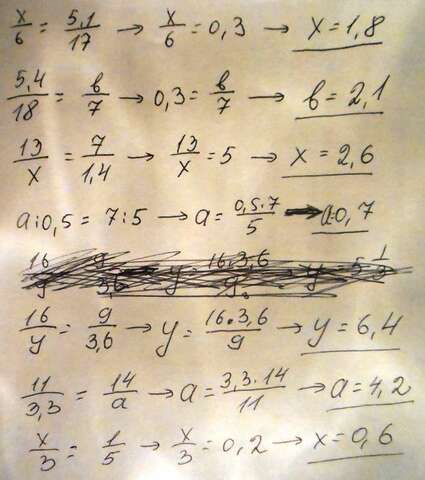 x/6 = 5,1/17 → x/6 = 0,3 → x = 1,8
5,4/18 = в/7 → 0,3 = в/7 → в = 2,1
13/x = 7/1,4 → 13/x = 5 → x = 2,6
a:0,5 = 7:5 → a = 0,5·7/5 → a=0,7
16/y = 9/3,6 → y = 16·3,6/9 → y = 6,4
11/3,3 = 14/a → a = 3,3·14/11 → a = 4,2
x/3 = 1/5 → x/3 = 0,2 → x = 0,6